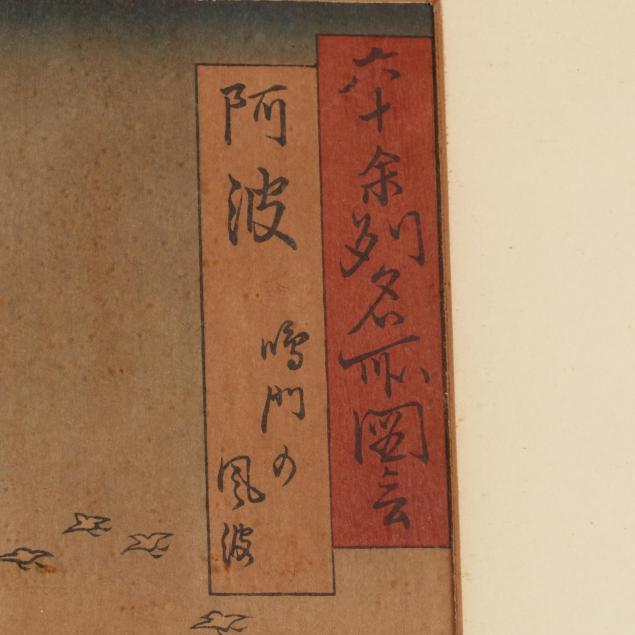 六十余州名所図会
阿波
鳴門の
風波